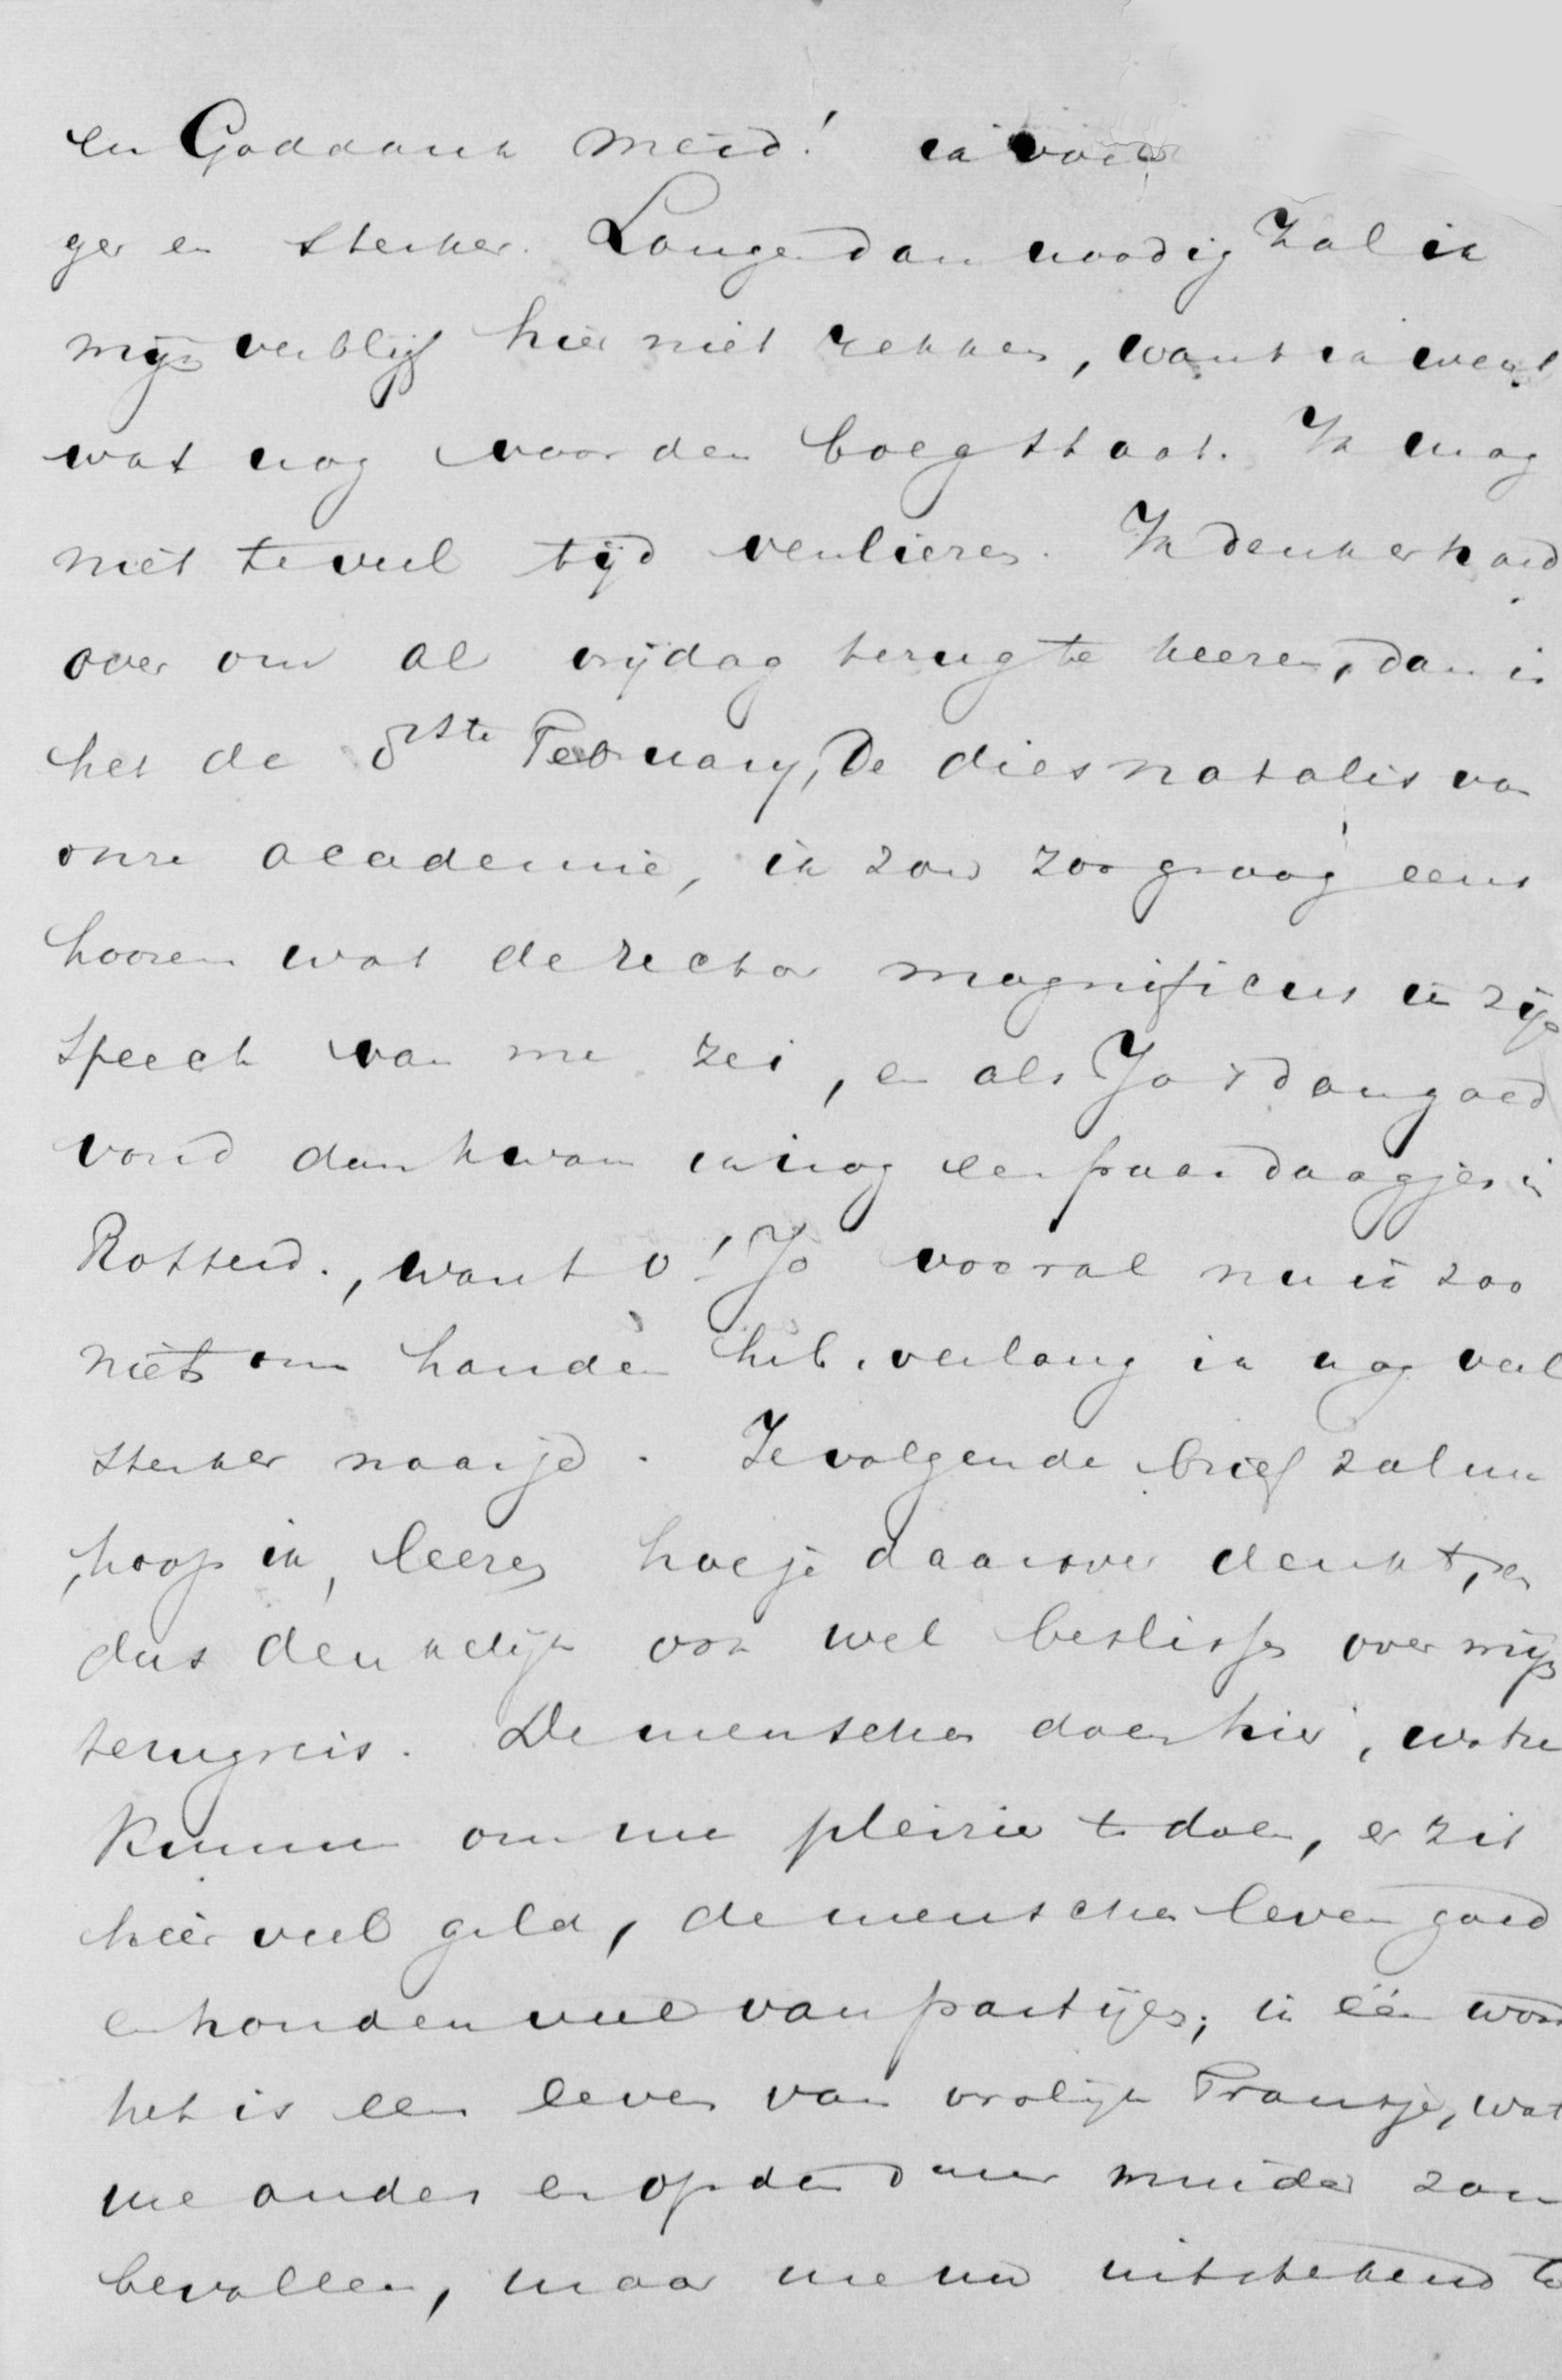 en Goddank meid! ik voel
ger en sterker. Langer dan noodig zal ik
mijn verblijf hier niet rekken, want ik weet
wat nog voor den boeg staat. Ik mag
niet te veel tijd verliezen. Ik denk er hard
over om al vrijdag terug te keeren, dan is
het de 8ste February, De dies natalis van
onze academie, ik zou zoo graag eens
hooren wat de rector magnificus in zijn
speech van me zei, en als Jo 't dan goed
vond dan kwam ik nog een paar daagjes in
Rotterd., want o! Jo vooral nu ik zoo
niets om handen heb verlang ik nog veel
sterker naar je. Je volgende brief zal me
, hoop ik, leeren hoe je daarover denkt, en
dus denkelijk ook wel beslissen over mijn
terugreis. De menschen doen hier, wat ze
kunnen om me pleizier te doen, er zit
hier veel geld, de menschen leven goed
en houden veel van partijen; in één woord
het is een leven van vrolijk Fransje, wat
me anders en op den duur minder zou
bevallen, maar me nu uitstekend te